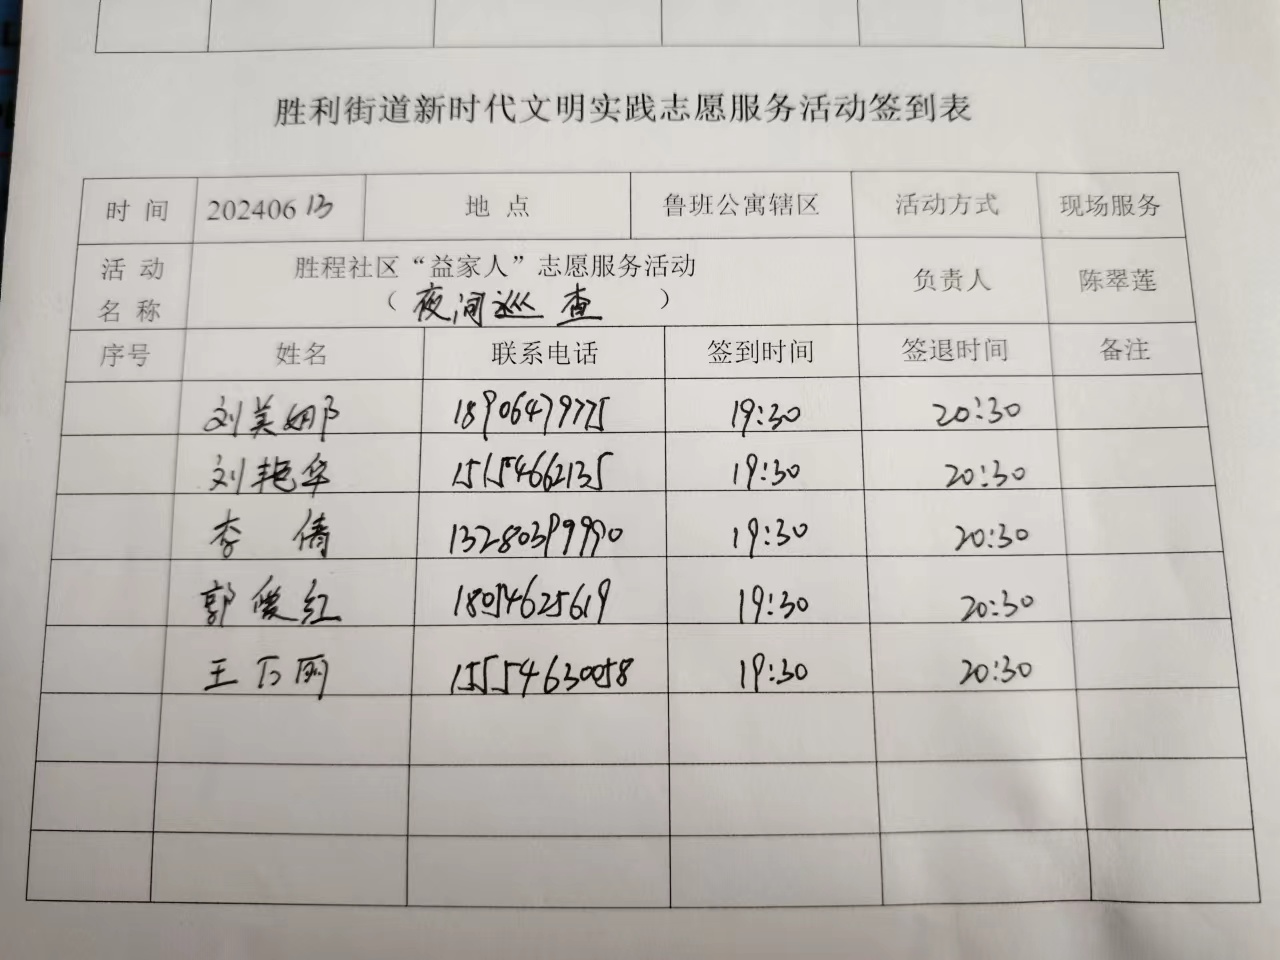 胜利街道新时代文明实践志愿服务活动签到表
时 间 20240613 地 点 鲁班公寓辖区 活动方式 现场服务
活 动 名 称 胜程社区“益家人”志愿服务活动 负责人 陈翠莲
（ 夜间巡查 ）
序号 姓名 联系电话 签到时间 签退时间 备注
刘美娜 18906479775 19:30 20:30
刘艳华 15154662135 19:30 20:30
李 倩 13280399990 19:30 20:30
郭俊红 18054625619 19:30 20:30
王 15554630058 19:30 20:30